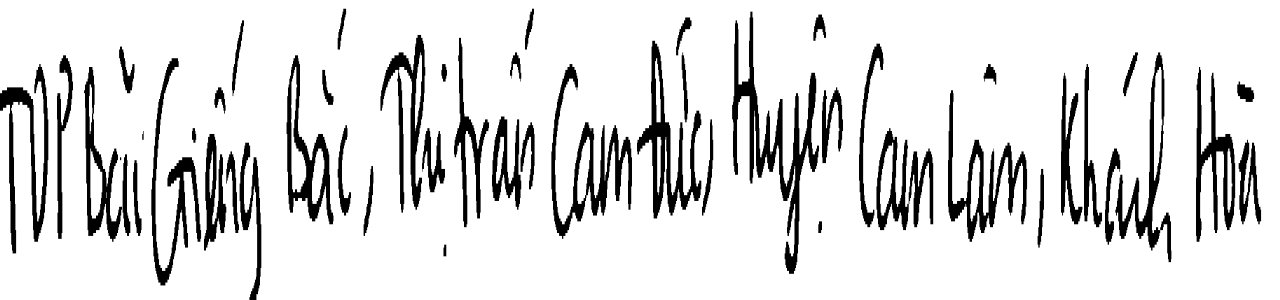 TDP Bãi Giếng Bắc, Thị trấn Cam Đức, Huyện Cam Lâm, Khánh Hòa